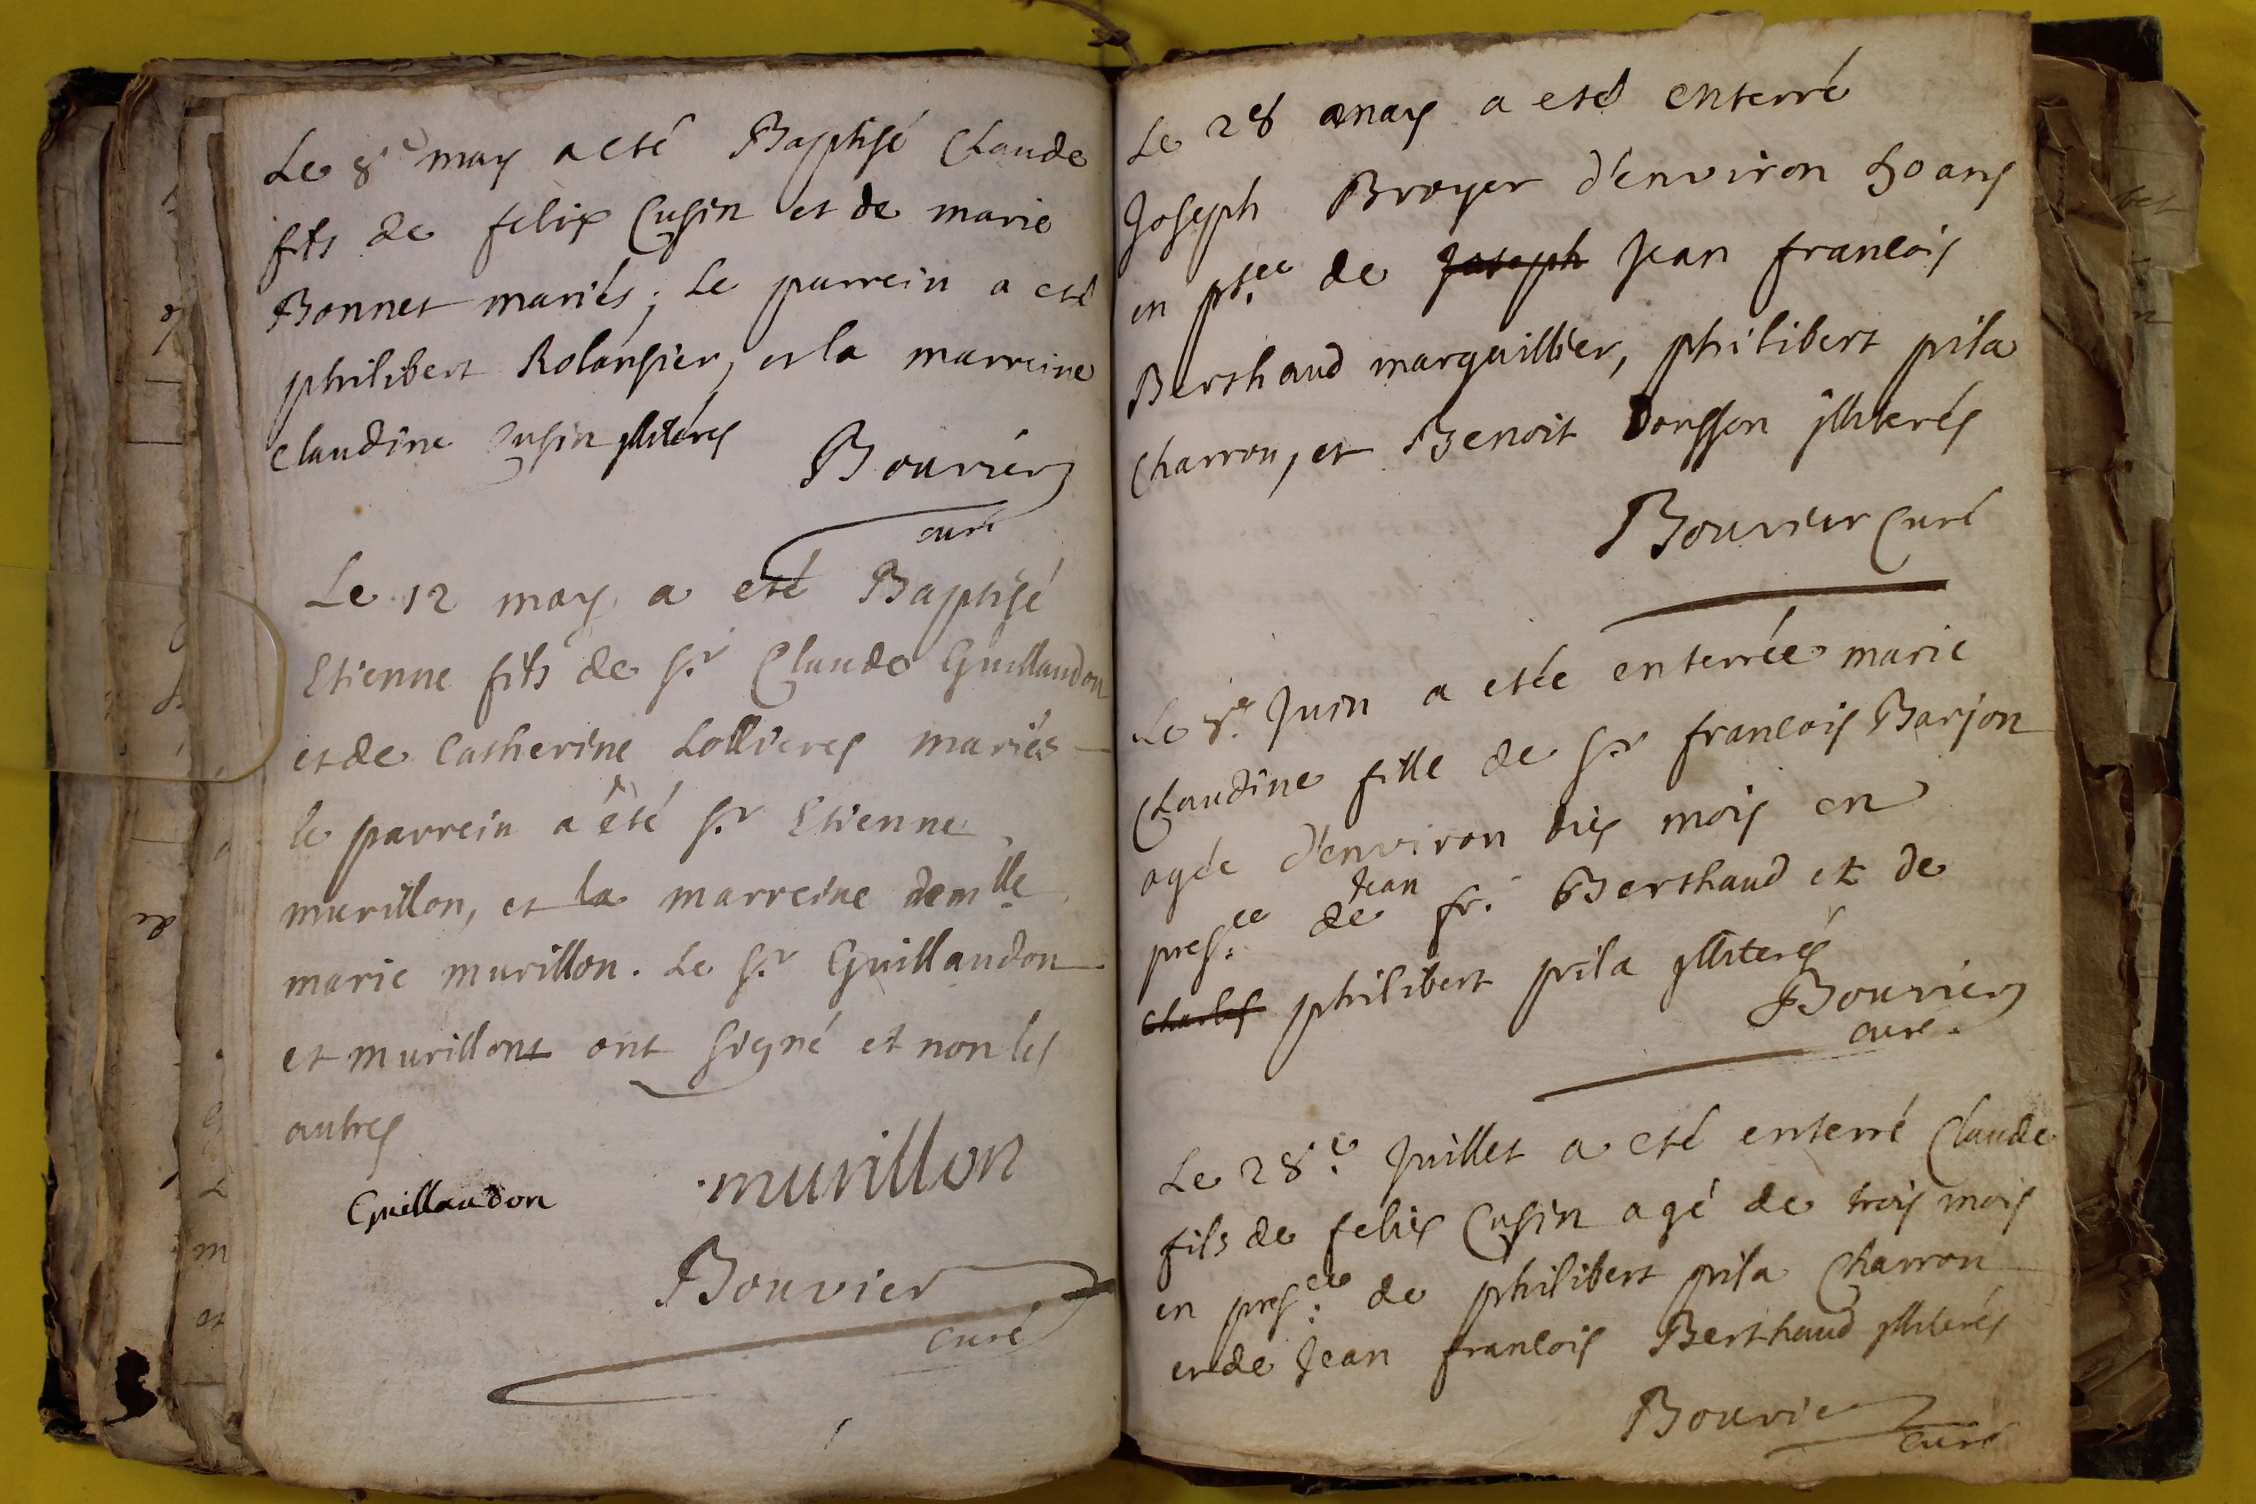 Le 8e may a eté Baptisé Claude
fils de felix Cusin et de marie
Bonnet mariés; Le parrein a eté
philibert Rolansier, et la marreine
Claudine Cusin jlliterés
Bouvier
curé
Le 12 may a eté Baptisé
Etienne fils de Sr. Claude Guillaudon
et de Catherine Lollieres mariés
le parrein a été Sr. Etienne
murillon, et la marreine demlle
marie murillon. Le Sr. Guillaudon
et murillont ont signé et non les
autres
Guillaudon murillon
Bouvier
curé
Le 28 may a eté enterré
Joseph Broyer d'environ 50 ans
en pr.ce de Joseph Jean francois
Berthaud marguillier, philibert pila
Charron, et Benoit jlliterés
Bouvier Curé
Le 8e. Juin a etée enterrée marie
Claudine fille de Sr. francois Barjon
agée d'environ dix mois en
pres.ce de Jean fr. Berthaud et de
Charles philibert pila jlliterés
Bouvier
curé.
Le 28.e Juillet a eté enterré Claude
fils de felix Cusin agé de trois mois
en pres.ce de philibert pila Charron
et de Jean francois Berthaud jlliterés
Bouvier
curé